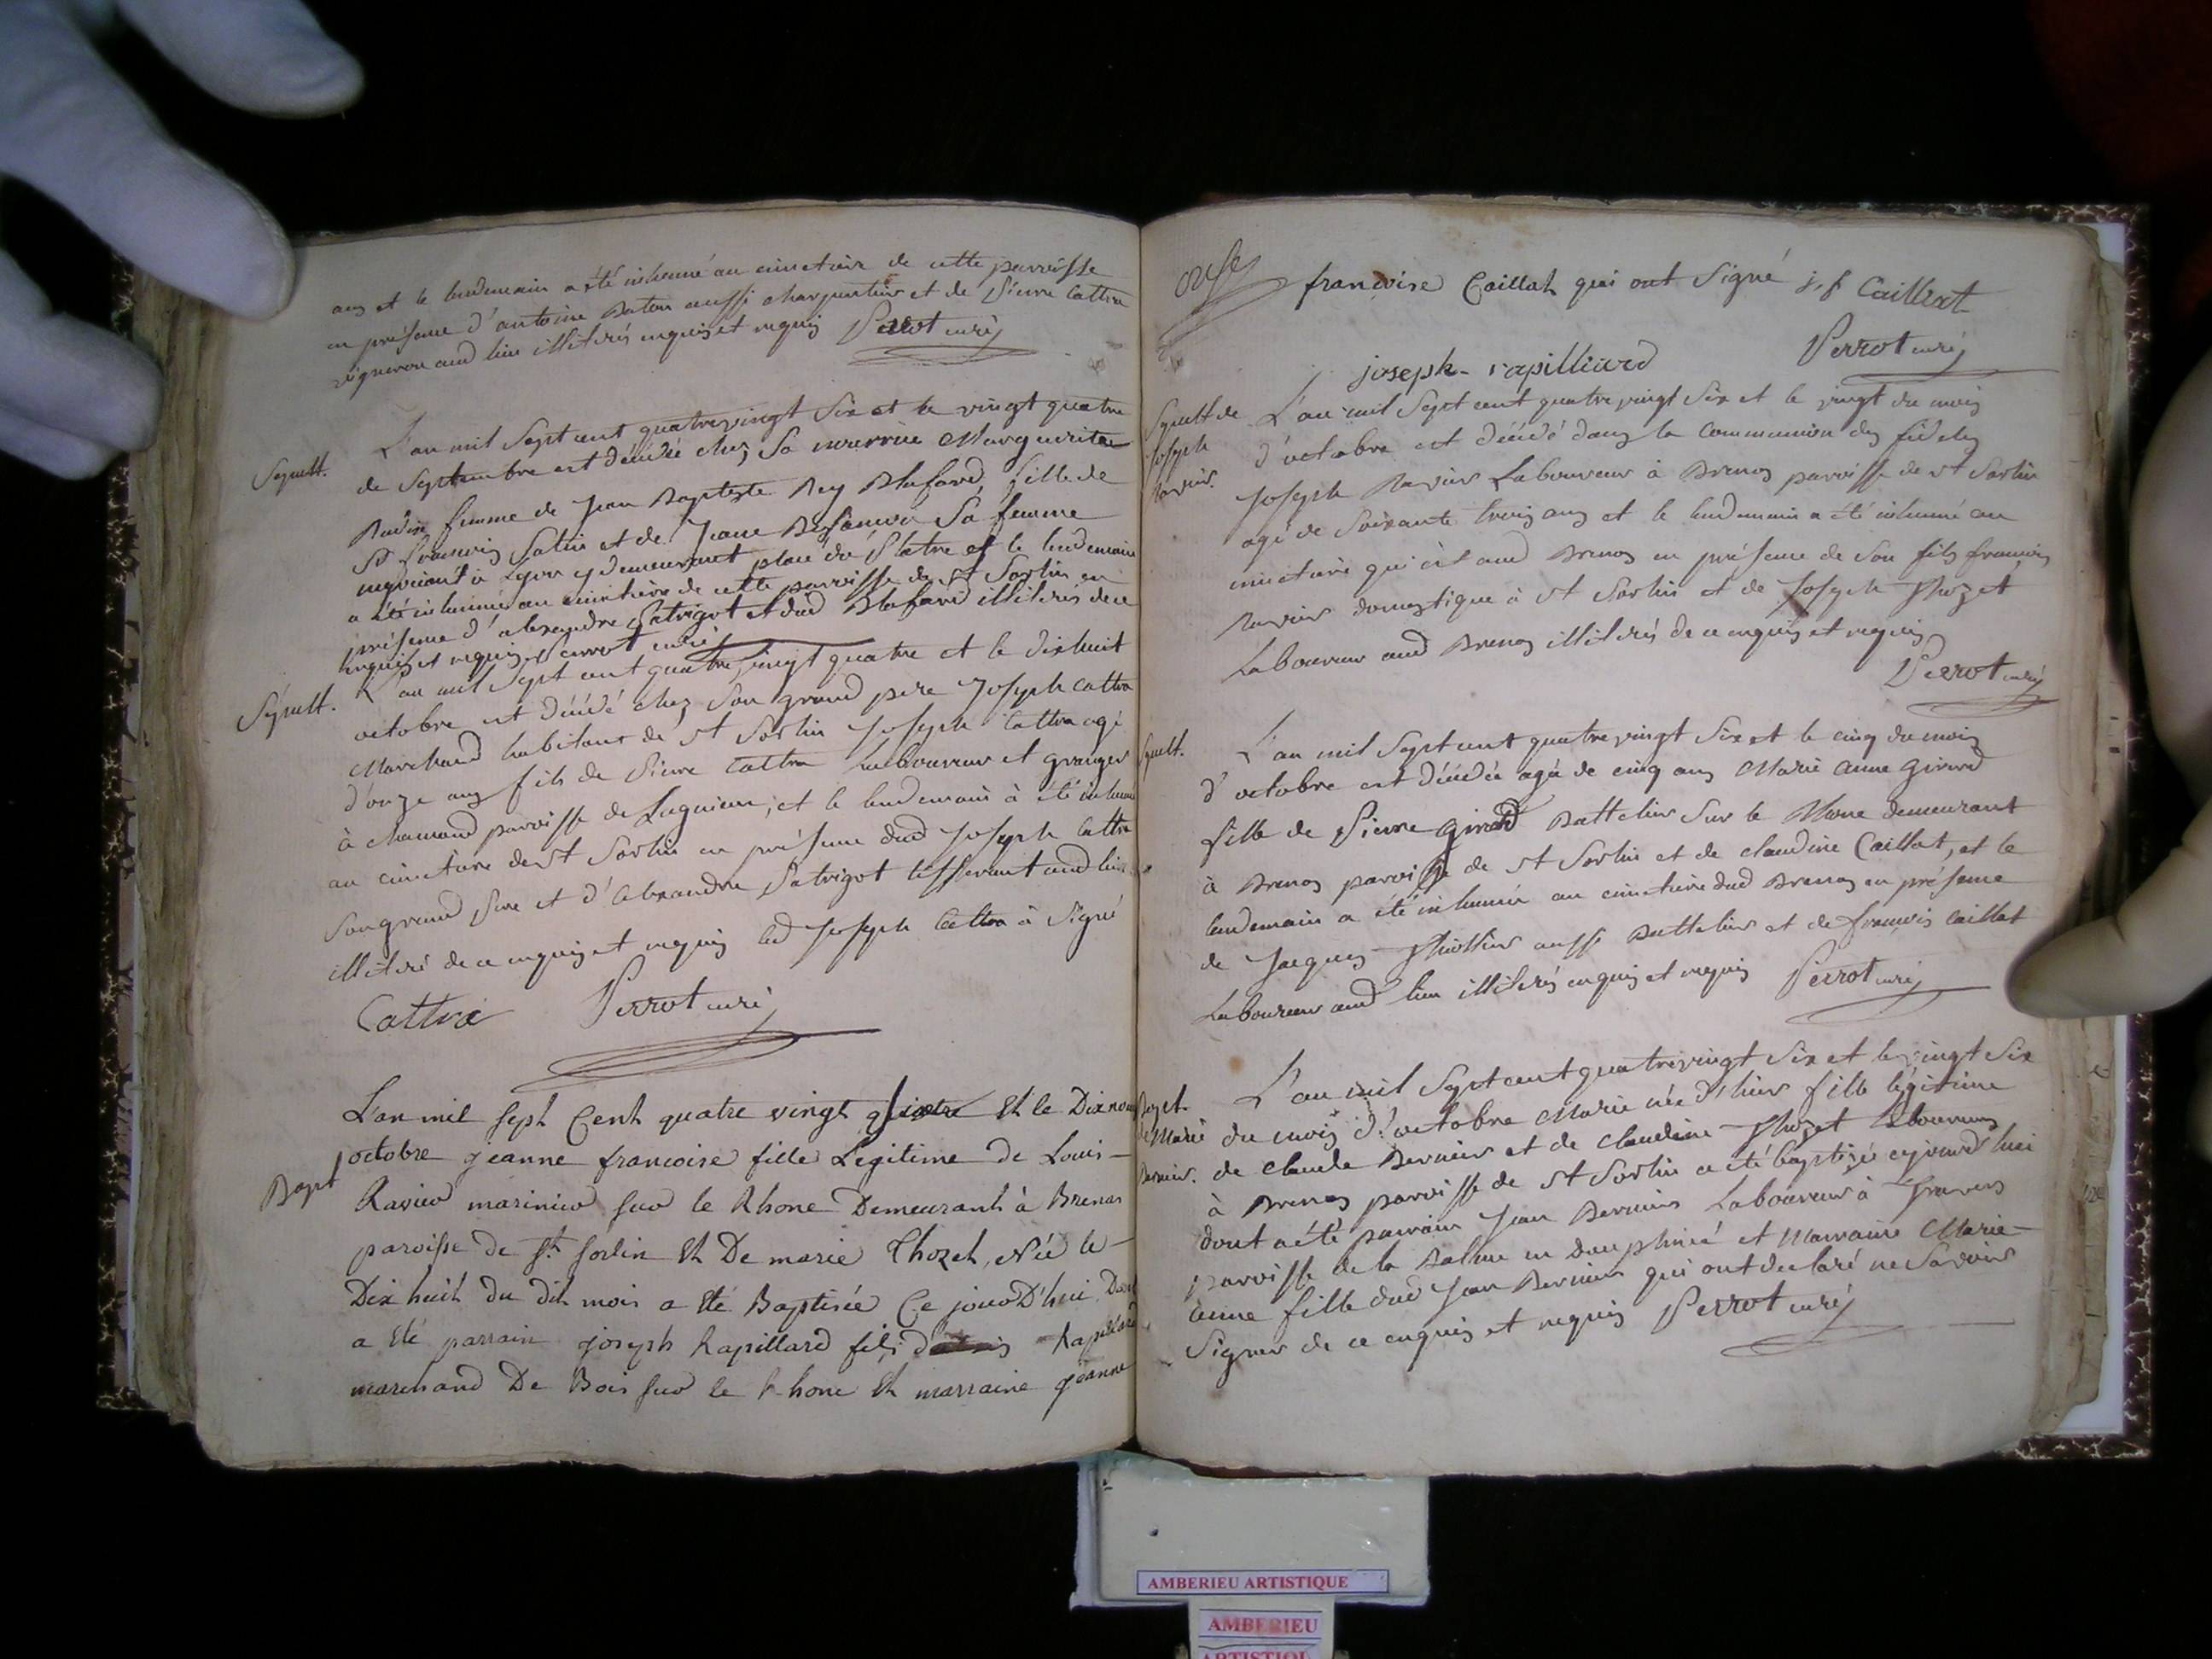 ans et le lendemain a été inhumé au cimetiere de cette parroisse
en présence d'antoine Baton aussi charpentier et de Pierre Cattra
vigneron aud lieu illitérés enquis et requis Perrot curé
Sepult.
L'an mil Sept cent quatrevingt Six et le vingt quatre
de Septembre est décédée chez Sa nourrice Marguerite
femme de Jean Baptiste Rey Blafard, fille de
Sr francois Patin et de Jeane Sa femme
negociant à Lyon y demeurant place du Platre et le lendemain
a été inhumée au cimetiere de cette parroisse de St Sorlin en
présence d'alexandre Patrigot et dud Blafard illiterés de ce
enquis et requis Perrot curé
Sépult.
L'an mil Sept cent quatre vingt quatre et le dixhuit
octobre est décédé chez Son grand pere Joseph Cattra
Marchand habitant de St Sorlin Joseph Cattra agé
d'onze ans fils de Pierre Cattra Laboureur et granger
à chamand paroisse de Lagnieu, et le lendemain à été inhumé
au cimetiere de St Sorlin en présence dud Joseph Cattra
Son grand Pere et d'alexandre Patrigot tisserant aud lieu
illitéré de ce enquis et requis led Joseph Cattra à Signé
Cattra Perrot curé
L'an mil sept Cent quatre vingt quatre Et le Dixneuf
octobre jeanne francoise fille Legitime de Louis
Bapt
Ravier marinier sur le Rhone Demeurant à Brenas
paroisse de St sorlin Et De marie Thozet, Née le
Dix huit du dit mois a Eté Baptisée Ce jourD'hui Dont
a Eté parrain joseph Rapillard fils Rapillard
marchand De Bois sur le Rhone Et marraine jeanne
onze
francoise Caillat qui ont Signé j. f Caillat
joseph rapilliard Perrot curé
Sepult de
Joseph
Ravier.
L'an mil Sept cent quatre vingt Six et le vingt du mois
d'octobre est décédé dans la Communion des fideles
Joseph Ravier Laboureur à Brenas paroisse de St Sorlin
agé de Soixante trois ans et le lendemain a été inhumé au
cimetiere qui est aud Brenas en présence de Son fils francois
Ravier domestique à St Sorlin et de Joseph Thozet
Laboureur aud Brenas illitérés de ce enquis et requis
Perrot curé
Sepult.
L'an mil Sept cent quatre vingt Six et le cinq du mois
d'octobre est décédée agée de cinq ans Marie Anne Girard
fille de Pierre Girard Battelier Sur le Rhone demeurant
à Brenas paroisse de St Sorlin et de claudine Caillat, et le
lendemain a été inhumée au cimetiere dud Brenas en présence
de Jacques Thiollier aussi Battelier et de francois Caillat
Laboureur aud lieu illitérés enquis et requis Perrot curé
L'an mil Sept cent quatrevingt Six et le vingt Six
Bapt.
de Marie
Bernier.
du mois d'octobre Marie née d'hier fille légitime
de claude Bernier et de claudine Thozet Laboureurs
à Brenas paroisse de St Sorlin a été baptisée cejourd'hui
dont a été parrain Jean Bernier Laboureur à Travers
paroisse de la Balme en Dauphiné et Marraine Marie
Anne fille dud Jean Bernier qui ont declaré ne Savoir
Signer de ce enquis et requis Perrot curé
AMBERIEU ARTISTIQUE
AMBERIEU
ARTISTIQUE